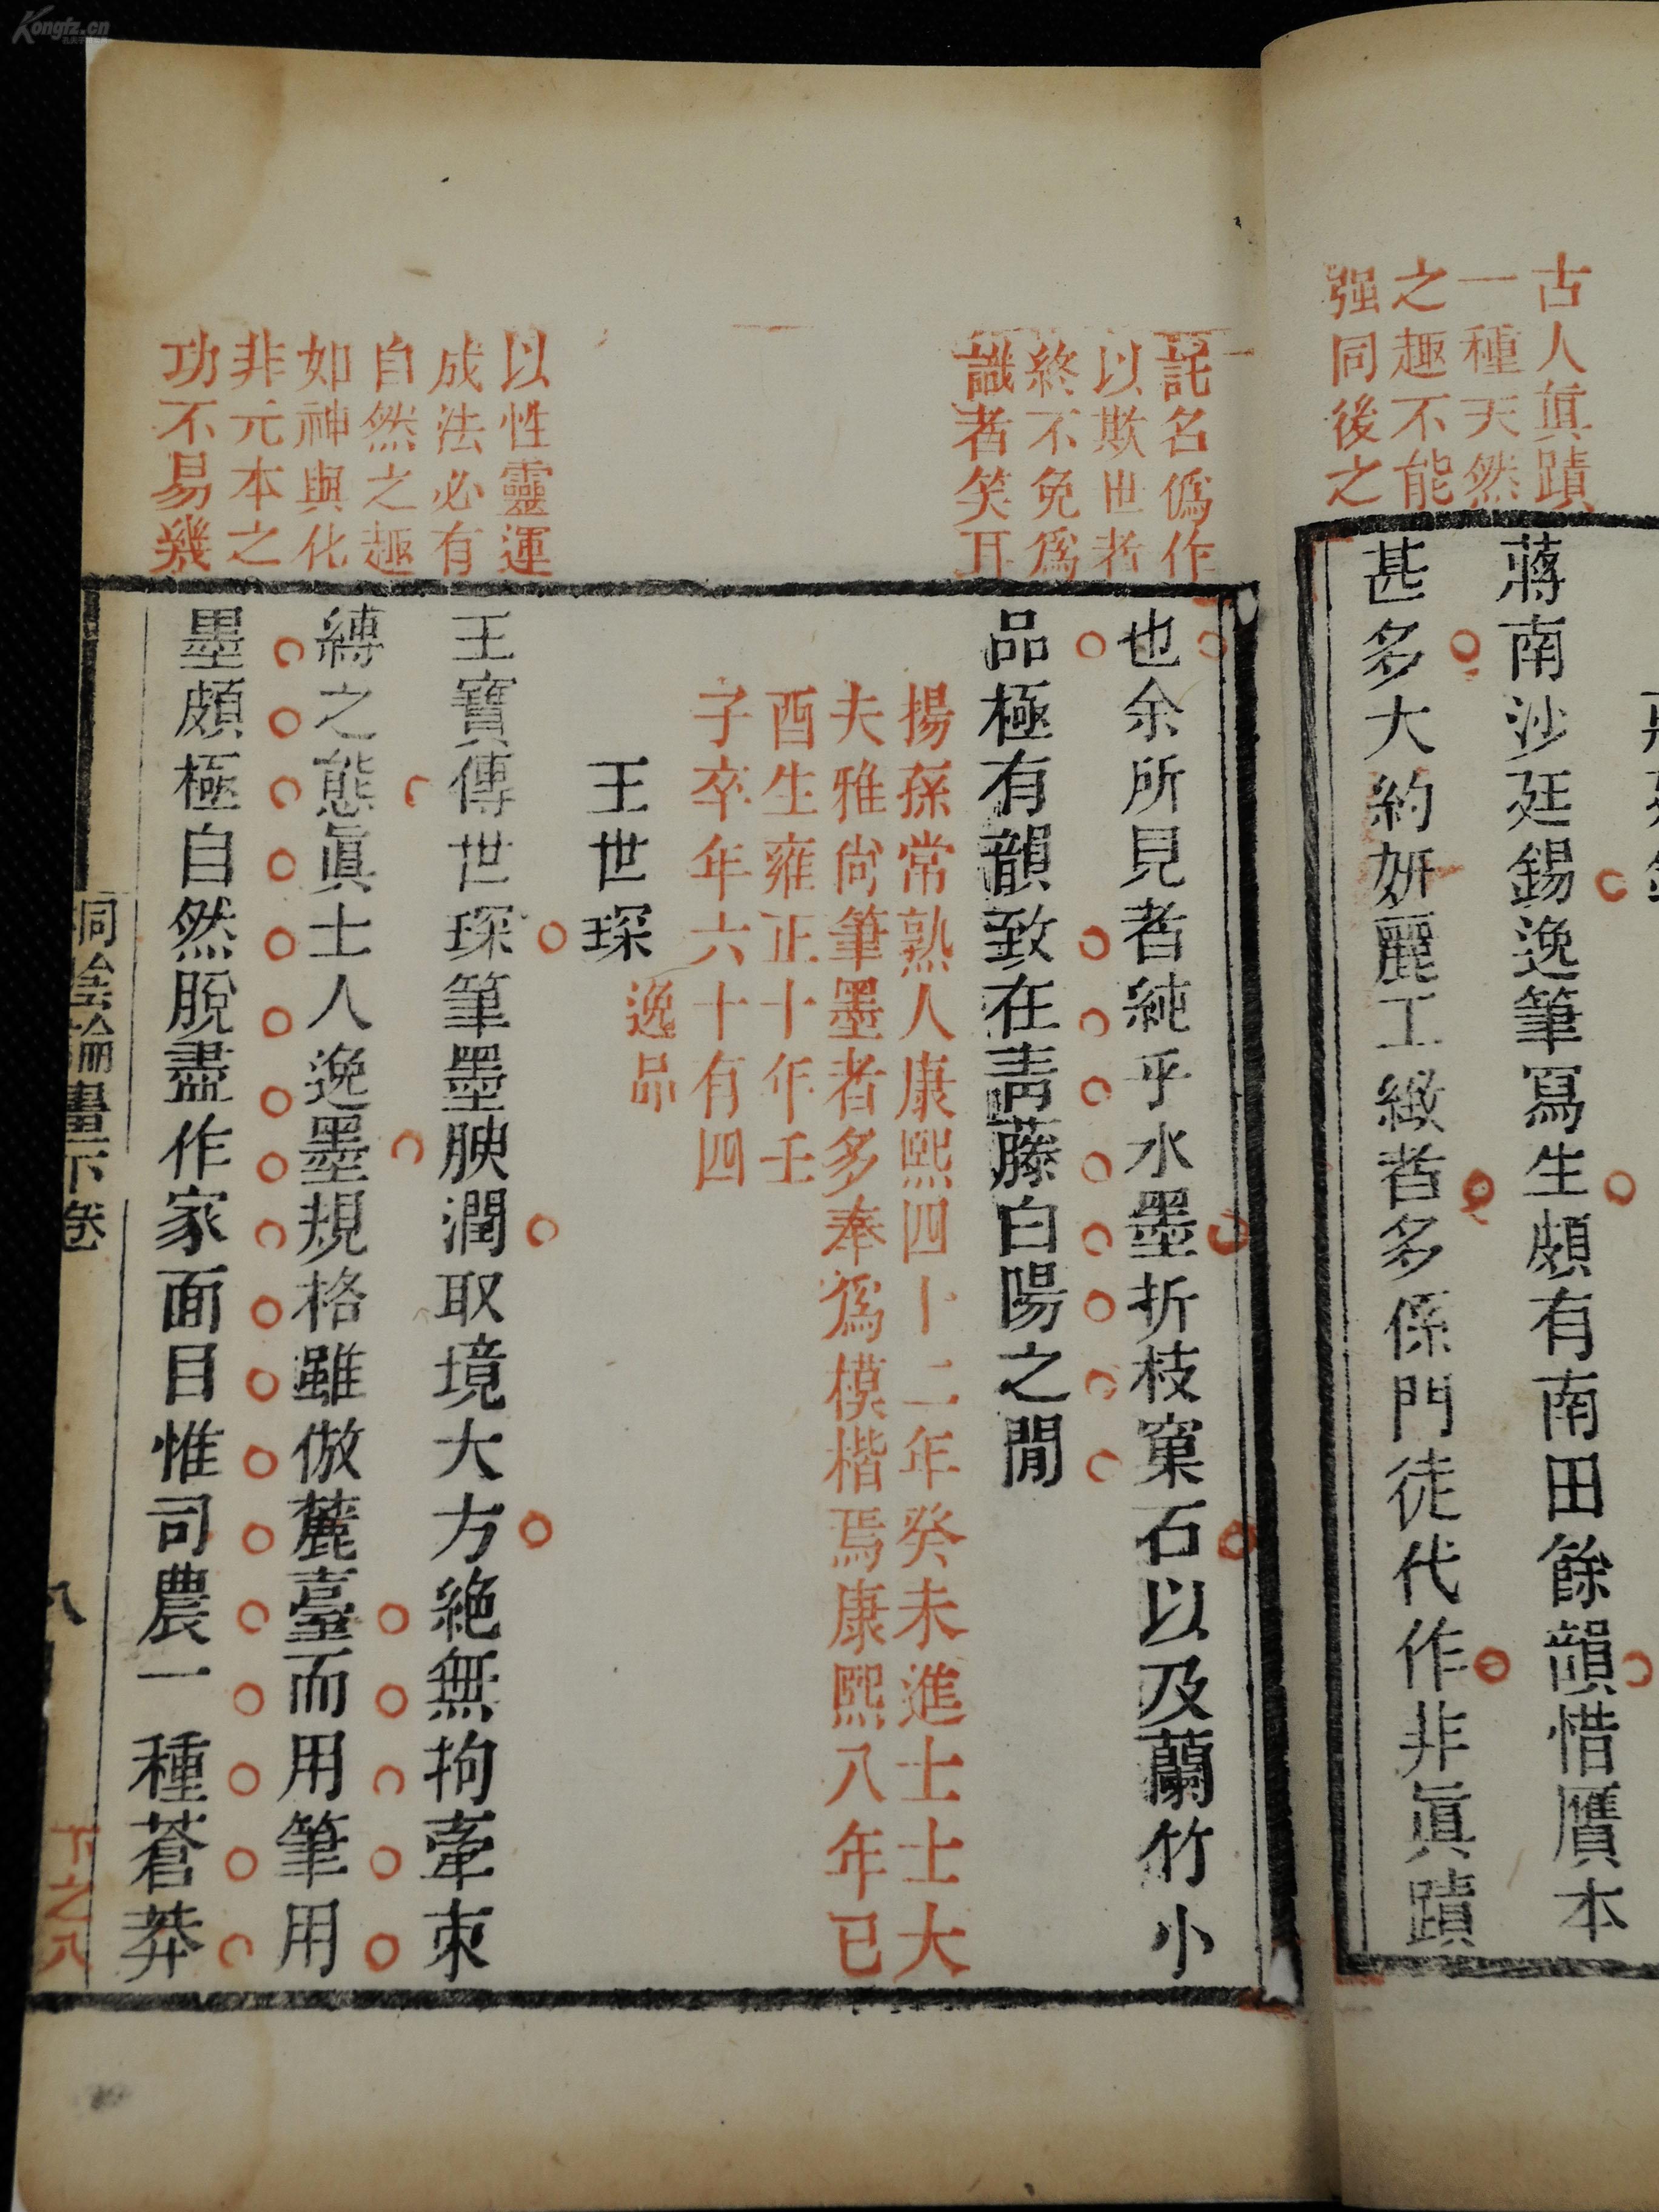 古人眞蹟
一種天然
之趣不能
强同後之
蔣南沙廷錫逸筆寫生頗有南田餘韻惜贋本
甚多大約妍麗工緻者多係門徒代作非眞蹟
託名僞作
以欺世者
終不免爲
識者笑耳
也余所見者純乎水墨折枝窠石以及蘭竹小
品極有韻致在青藤白陽之閒
揚孫常熟人康熙四十二年癸未進士士大
夫雅尚筆墨者多奉爲模楷焉康熙八年已
酉生雍正十年壬
子卒年六十有四
王世琛
逸品
以性靈運
成法必有
自然之趣
如神與化
非元本之
功不易幾
王寶傳世琛筆墨腴潤取境大方絶無拘牽束
縛之態眞士人逸墨規格雖倣麓臺而用筆用
墨頗極自然脫盡作家面目惟司農一種蒼莽
桐陰論畫下卷
八
下之八
Kongfz.cn